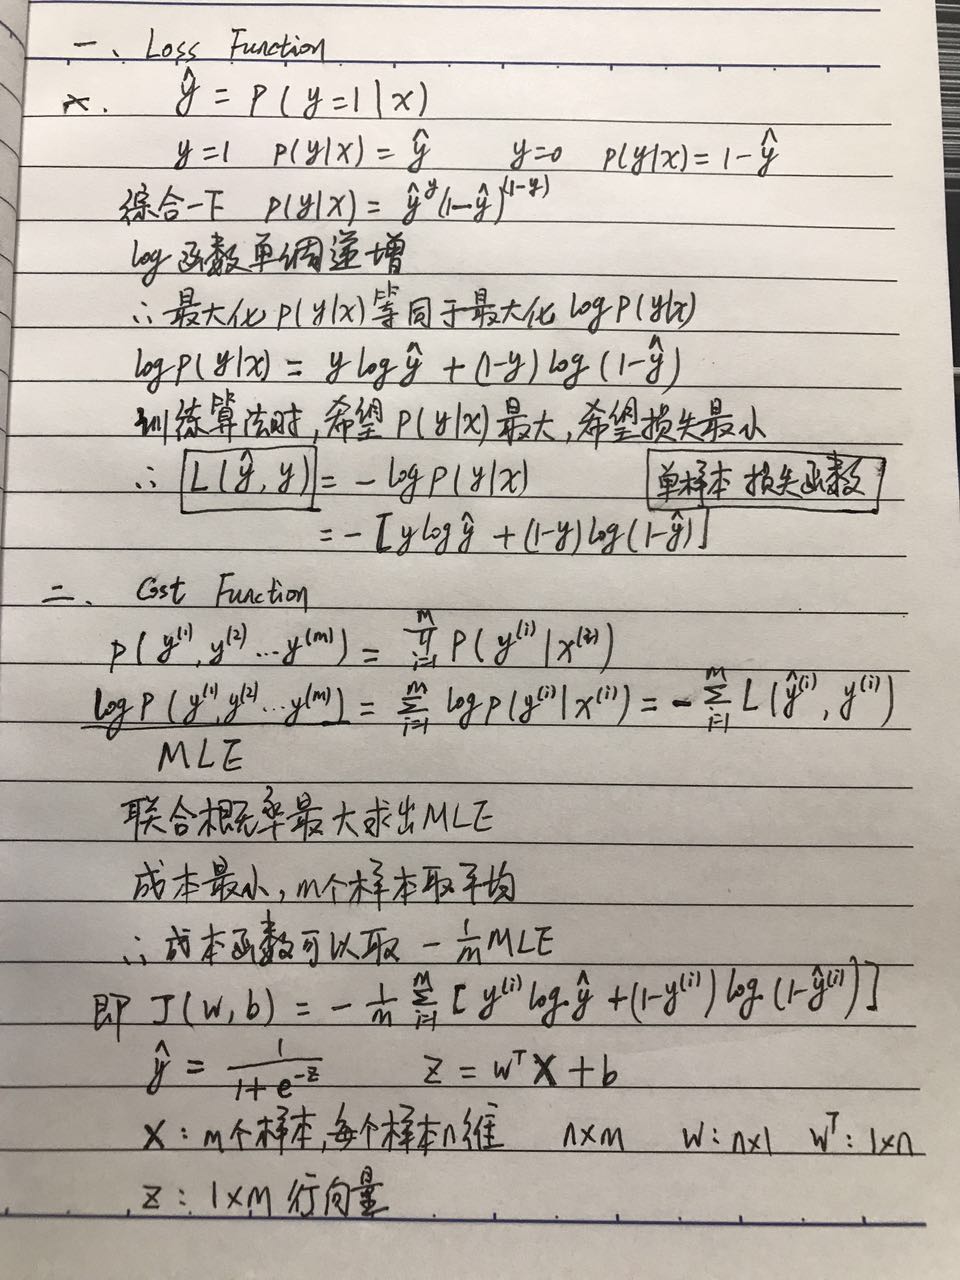 一、Loss Function
ŷ = P(y=1|x)
y=1 P(y|x) = ŷ y=0 P(y|x) = 1-ŷ
综合一下 P(y|x) = ŷ^y(1-ŷ)^(1-y)
log函数单调递增
∴最大化P(y|x)等同于最大化logP(y|x)
logP(y|x) = ylogŷ + (1-y)log(1-ŷ)
训练算法时,希望P(y|x)最大,希望损失最小
∴ L(ŷ, y) = -logP(y|x) 单样本损失函数
= -[ylogŷ + (1-y)log(1-ŷ)]
二、Cost Function
P(y^(1), y^(2)...y^(m)) = ∏_{i=1}^m P(y^(i)|x^(i))
logP(y^(1), y^(2)...y^(m)) = Σ_{i=1}^m logP(y^(i)|x^(i)) = -Σ_{i=1}^m L(ŷ^(i), y^(i))
MLE
联合概率最大求出MLE
成本最小,m个样本取平均
∴成本函数可以取 -1/m MLE
即 J(w,b) = -1/m Σ_{i=1}^m [y^(i)logŷ + (1-y^(i))log(1-ŷ^(i))]
ŷ = 1/(1+e^-z) Z = w^T X + b
X: m个样本,每个样本n维 n×m W: n×1 W^T: 1×n
Z: 1×m 行向量